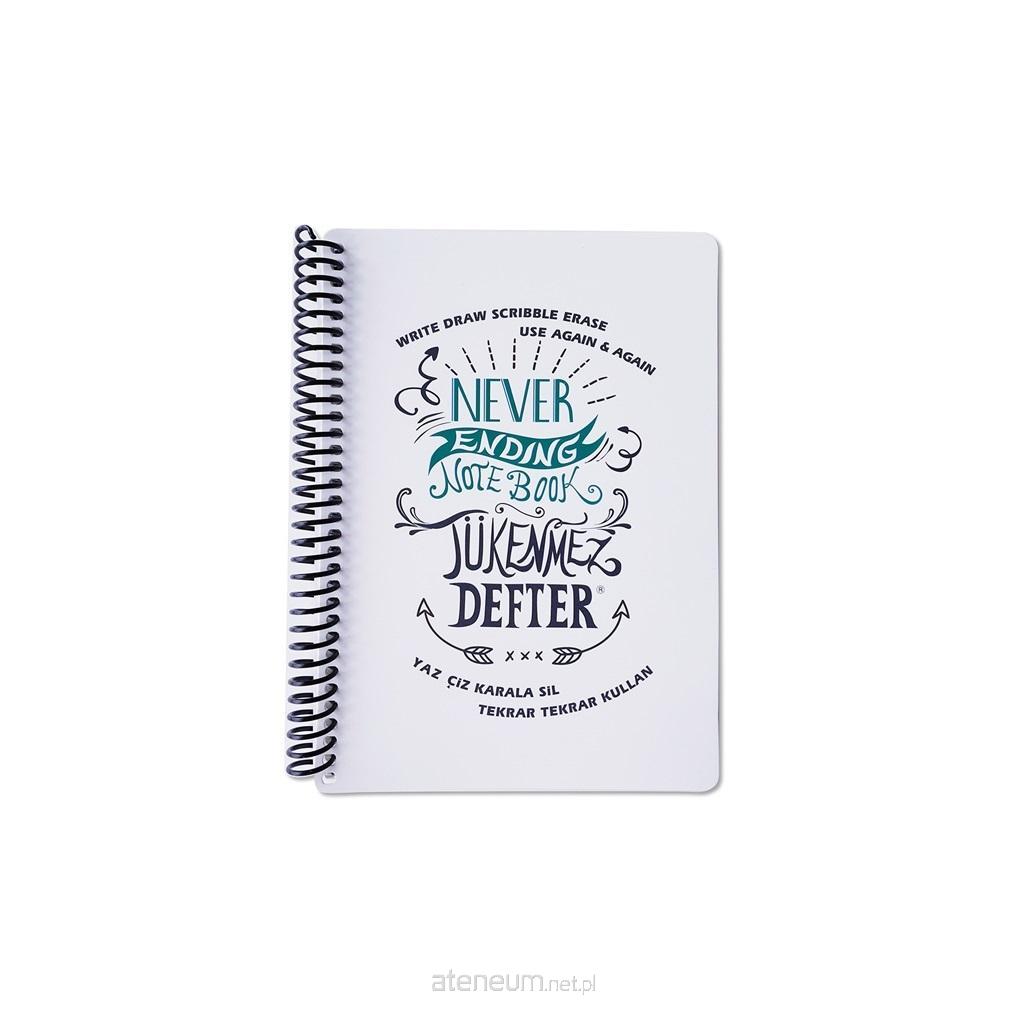 WRITE DRAW SCRIBBLE ERASE
USE AGAIN & AGAIN
NEVER
ENDING
NOTE BOOK
TÜKENMEZ
DEFTER®
XXX
YAZ ÇİZ KARALA SİL
TEKRAR TEKRAR KULLAN
ateneum.net.pl